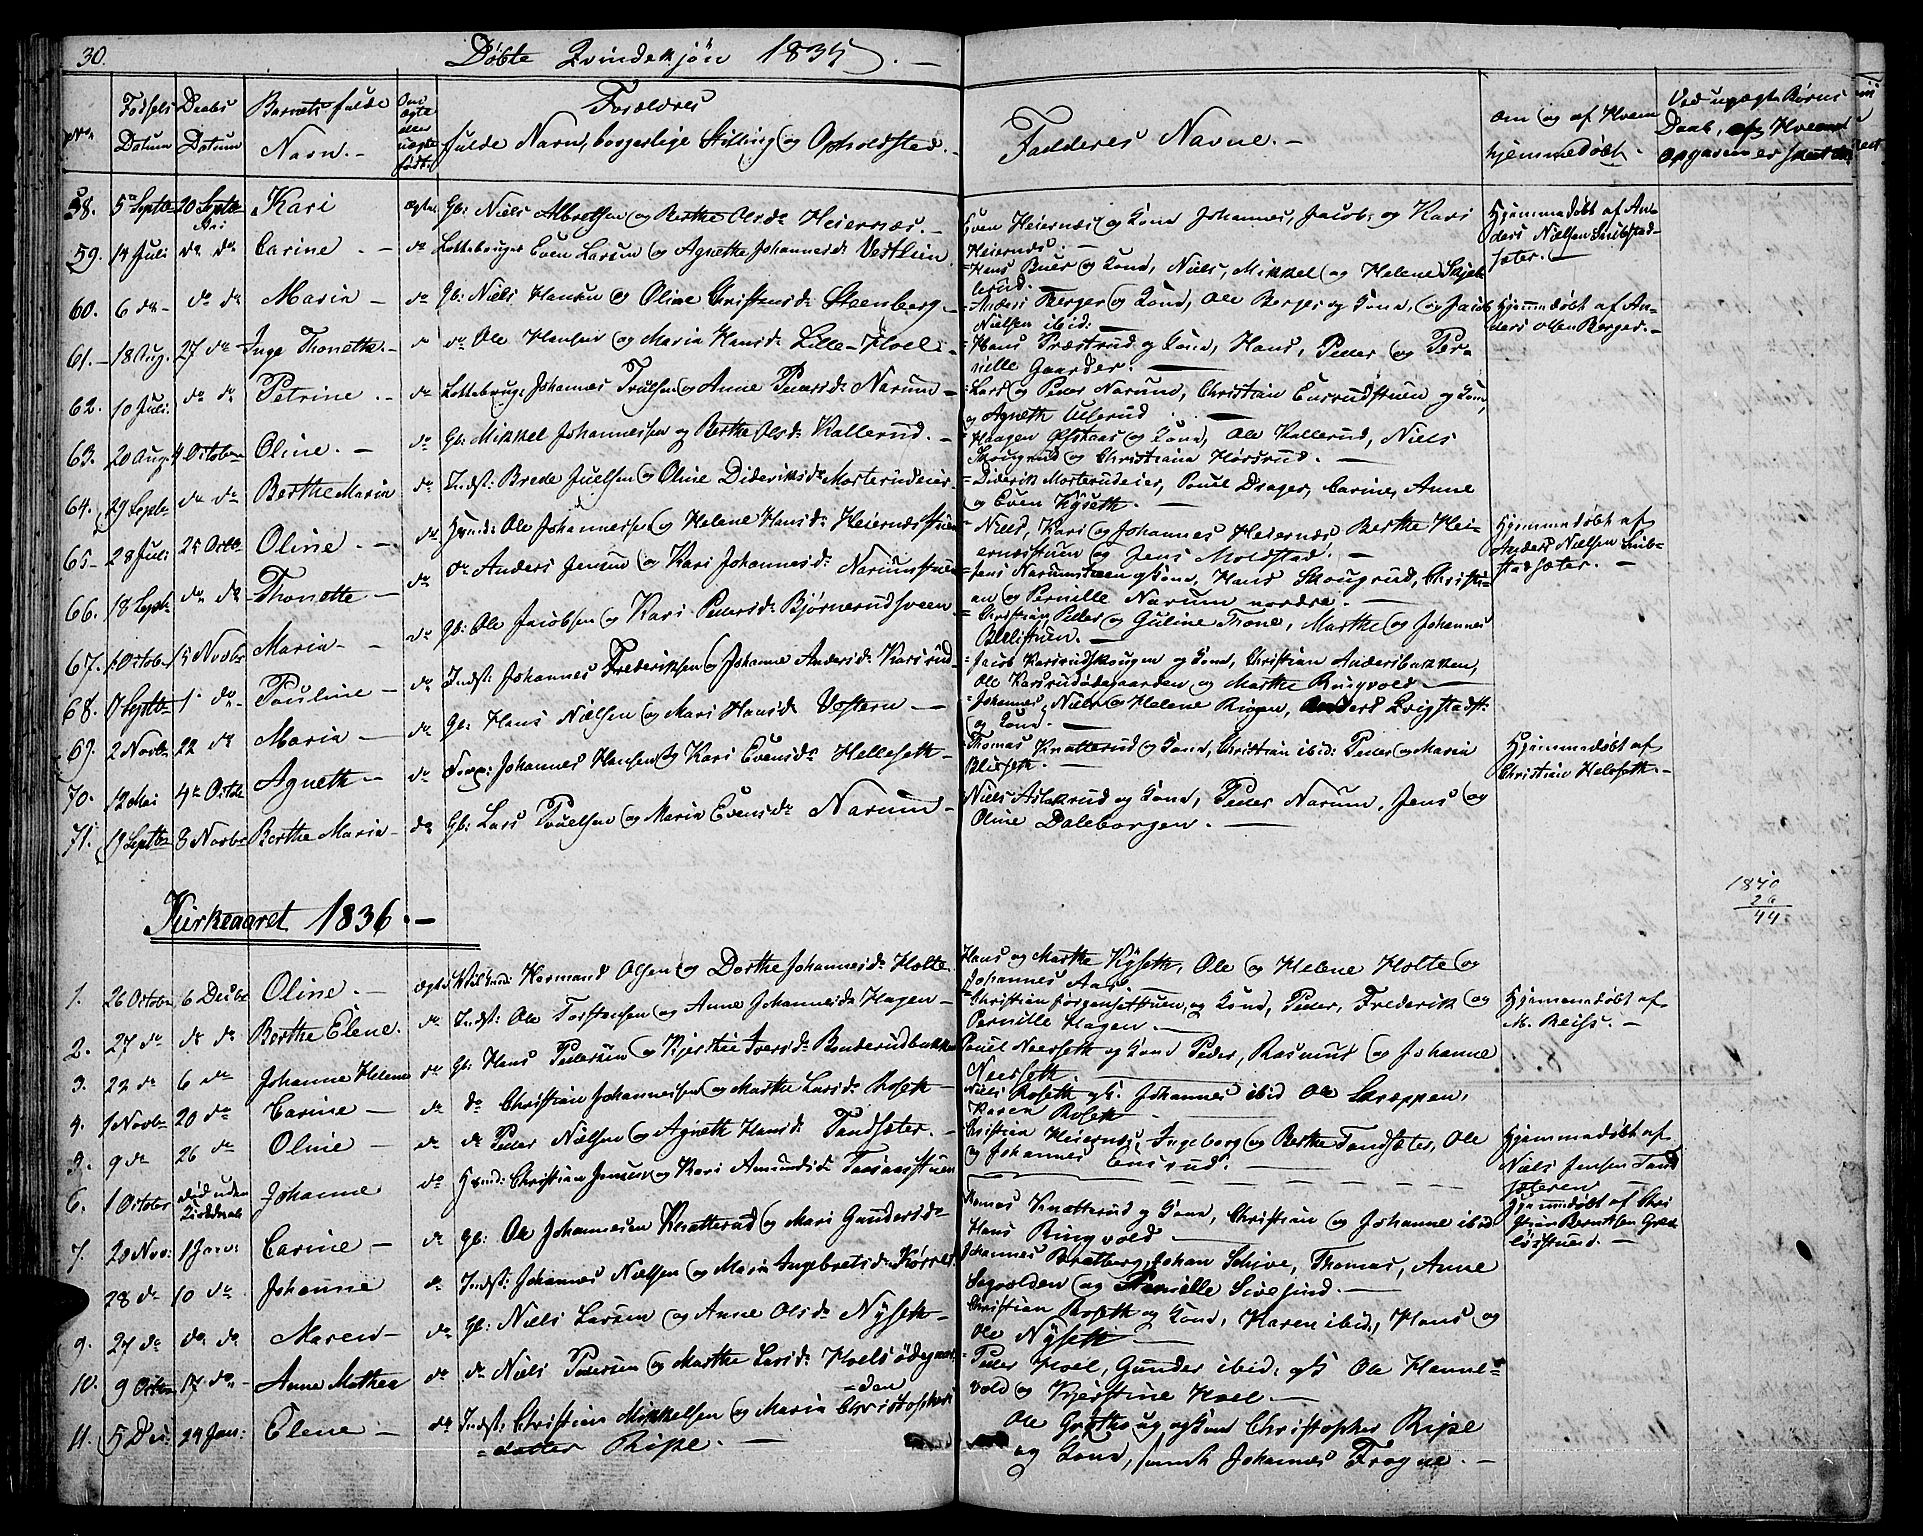 30.
Døbte Qvindekjön 1835. —
No.
Födsels
Datum
Daabs
Datum
Barnets fulde
Navn. —
Om
ægte
eller
uægte
födt.
Forældres
fulde Navn, borgerlige Stilling og Opholdsted. —
Faddernes Navne. —
om og af Hvem
hjemmedöbt. —
Ved uægte Börns
Daab, af Hvem
opgaven er
58. 5te Septbr 20 Septbr Kari ægte Gb: Niels Albretsen og Berthe Olsdr Heiernæs. —
Even Heiernæs og Kone Johannes, Jacob, og Kari
Heiernæs. —
Hjemmedöbt af An-
ders Nielsen Snibstad-
sæter. —
59. 14 Juli do do Carine — do Lottebruger Even Larsen og Agnethe Johannesdr Vestlien
Hans Buer og Kone, Niels, Mikkel og Helene Skjel-
lerud. —
60. 6 do do do Maria — do Gb: Niels Hansen og Oline Christensdr Steenberg —
Anders Berger og Kone, Ole Berger og Kone, og Jacob
Nielsen ibid: —
Hjemmedöbt af An-
ders Olsen Berger. —
61. — 18 Aug. 27 do Inge Thonethe. — do do Ole Hansen og Maria Hansdr Lille-Hoel. —
Hans Præstrud og Kone, Hans, Peder og Per-
nille Gaarder. —
62. 10 Juli. do do Petrine. — do Lottebruger Johannes Truelsen og Anne Pedersdr Narum —
Lars og Peder Narum, Christian Ensrudstuen og Kone,
og Agneth Ullerud —
63. 20 Aug. 4 October Oline. — do Gb: Mikkel Johannesen og Berthe Olsdr Kallerud. —
Haagen Ofstaas og Kone, Ole Kallerud, Niels
Skougrud og Christiana Hörsrud. —
64. 29 Septbr do do Berthe Maria do Indst: Brede Juelsen og Oline Dideriksdr Morterudeier
Diderik Morterudeier, Pouel Drager, Carine, Anne
og Even Kyseth. —
65 — 28 Juli 25 Octbr Oline. — do Hmd: Ole Johannesen og Helene Hansdr Heiernæsstuen
Niels, Kari og Johannes Heiernæs Berthe Hei-
ernæsstuen og Jens Moldstad. —
Hjemmedöbt af
Anders Nielsen Snib-
stadsæter. —
66. 18 Septbr do do Thonette — do do Anders Jensen og Kari Johannesdr Narumstuen
Jens Narumstuen og Kone, Hans Skougrud, Christi-
an og Pernille Narum nordre. —
67. 1 October 15 Novbr Maria — — do Gb: Ole Jacobsen og Kari Pedersdr Bjørnerudsveen
Christian, Peder og Guline Tone, Marthe og Johannes
Blilistuen. —
68. 7 Septbr 1. do Pauline — do Indst: Johannes Frederiksen og Johanne Andersdr Karsrud
Jacob Karsrudskougen og Kone, Christian Andersbakken,
Ole Karsrudødegaarden og Marthe Ringvold —
69. 2 Novbr 22 do Maria — do Gb: Hans Nielsen og Mari Hansdr Vestern —
Johannes, Niels og Helene Rogen, Anders Qvigstadst:
og Kone. —
70. 12 Mai 4de Octbr Agneth — do Johannes Hansen og Kari Evensdr Helleseth —
Thomas Knatterud og Kone, Christian ibid: Peder og Maria
Blisseth. —
Hjemmedöbt af
Christian Helleseth. —
71. 19 Septbr 8 Novbr Berthe Maria — do Gb: Lars Poulsen og Maria Evensdr Narum —
Niels Aslakrud og Kone, Peder Narum, Jens og
Oline Daleborgen. —
1840
26
44
Kirkeaaret 1836. —
1. 26 October 6 Decbr Oline. — ægte Hermand Olsen og Dorthe Johannesdr Holte
Hans og Marthe Kyseth, Ole og Helene Holte og
Johannes Aas —
2. 27 do do do Berthe Elene. do Indst: Ole Torstensen og Anne Johannesdr Hagen —
Christian Jörgensettuen, og Kone, Peder, Frederik og
Pernille Hagen. —
Hjemmedöbt af
M. Reiss. —
3. 22 do 6 do Johanne Helene do Gb: Hans Pedersen og Kjersthie Iversdr Bonderudbakken
Pouel Neerseth og Kone Peder, Rasmus og Johanne
Neerseth.
4. 1 Novbr 20 do Carine — do do Christian Johannesen og Marthe Larsdr Roseth —
Niels Roseth og K. Johannes ibid Ole Skreppen,
Karen Roseth —
5. 9 do 26 do Oline — do do Peder Nielsen og Agneth Hansdr Tandsæter. —
Christian Heiernæs, Ingeborg og Berthe Tandsæter, Ole
og Johannes Ensrud. —
Hjemmedöbt af
Niels Jensen Tand
sæteren —
6. 1 October död uden Johanne do Hmd: Christian Jensen og Kari Amundsdr Taasaasstuen
7. 20 Nov: 1 Janu: Carine — do Gb: Ole Johannesen Knatterud og Mari Gundersdr
Thomas Knatterud og Kone, Christian og Johanne ibid
Hans Ringvold —
Hjemmdöbt af Chri
stian Berntsen
28 do 10 do Johanne do Indst: Johannes Nielsen og Maria Ingebretsdr Körren
Johannes Bratberg, Johan Schive, Thomas, Anne
Sagvolden og Pernille Sivesind. —
9. 27 do do do Maren — do Gb: Niels Larsen og Anne Olsdr Nyseth —
Christian Roseth og Kone, Karen ibid:, Hans og
Ole Nyseth —
10. 9 Octbr 17 do Anne Mathea do do Niels Pedersen og Marthe Larsdr Hoelsödegaar-
den
Peder Hoel, Gunder ibid: og K Ole Hanne-
vold og Kjerstine Hoel. —
11. 5 Dec: 24 Jan: Elene — do Indst: Christian Mikkelsen og Maria Christophers-
datter Ripe. —
Ole Gröthoug og Kone Christopher Ripe
og Kone, samt Johannes Frogne. —